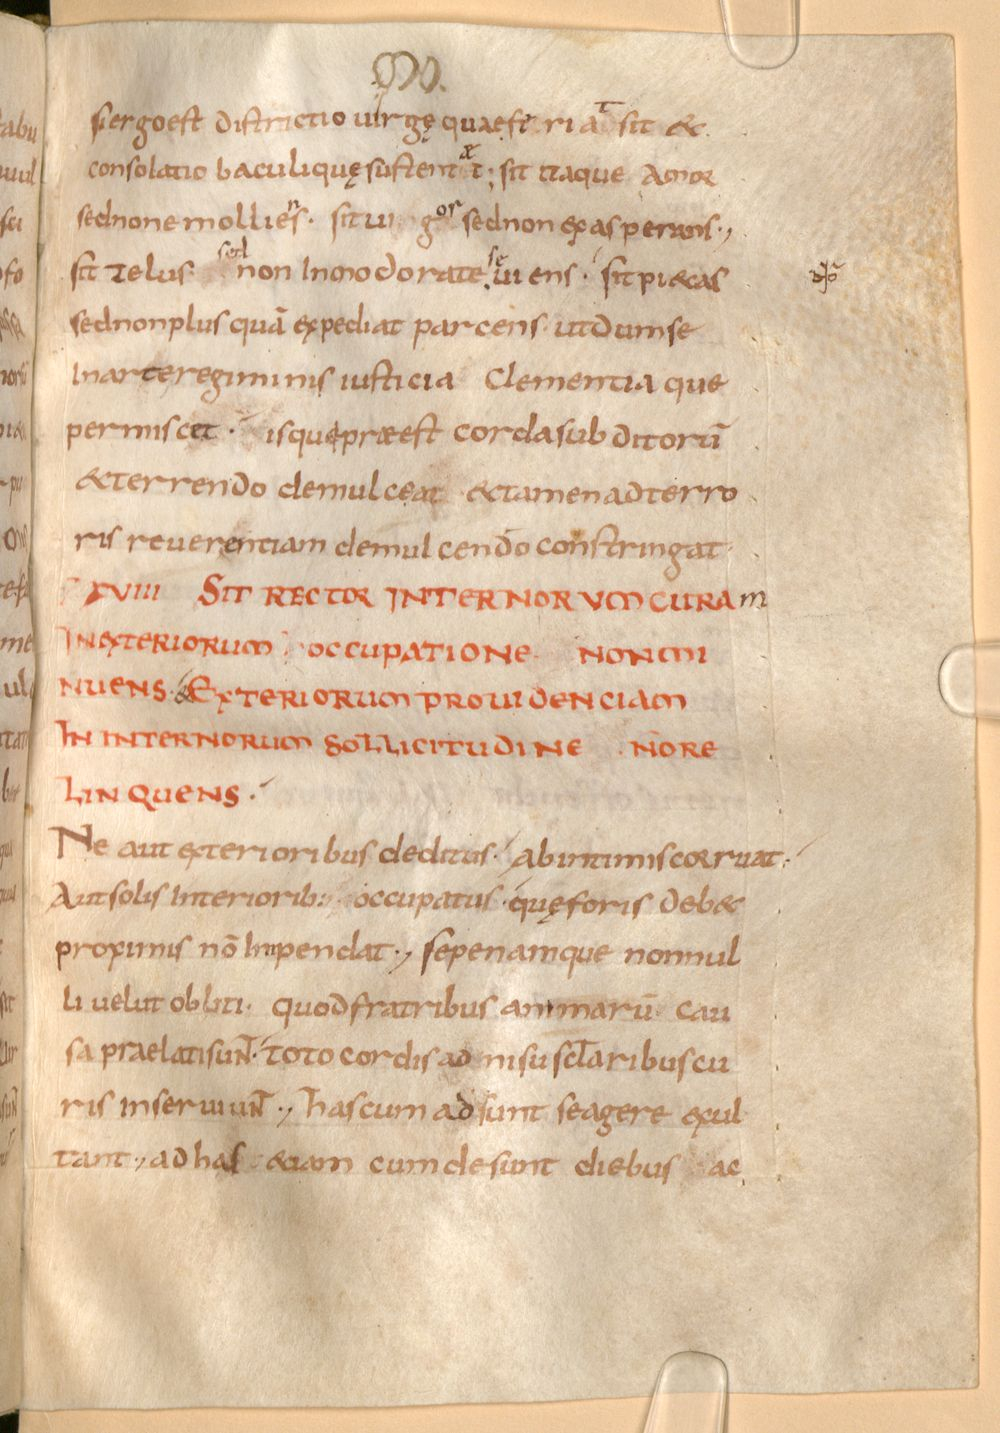 si ergo est districtio uirgę quae feriat sit &
consolatio baculi quę sustentet; sit itaque amor
sed non emolliens. sit uigor sed non exasperans.,
sit zelus sed non inmoderate seuiens. sit pi&as
sed non plus quā expediat parcens. ut dum se
in arte regiminis iusticia clementia que
permiscet. is qui pręest corda subditorū
& terrendo demulceat & tamen ad terro
ris reuerentiam demulcendo constringat
XVIII SIT RECTOR INTERNORUM CURAM
IN EXTERIORUM OCCUPATIONE NON MI
NUENS & EXTERIORUM PROUIDENCIAM
IN INTERNORUM SOLLICITUDINE NŌ RE
LINQUENS.
Ne aut exterioribus deditus. ab intimis corruat.
Aut solis interiorib; occupatus. quę foris deb&
proximis nō inpendat., sepe namque nonnul
li uelut obliti. quod fratribus animarū cau
sa praelati sunt. toto cordis adnisu sclaribus cu
ris inseruiunt., has cum adsunt se agere exul
tant., ad has &iam cum desunt diebus ac